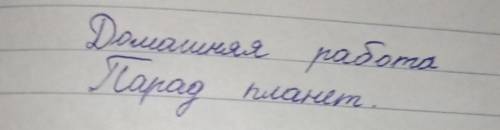 Домашняя работа
Парад планет.